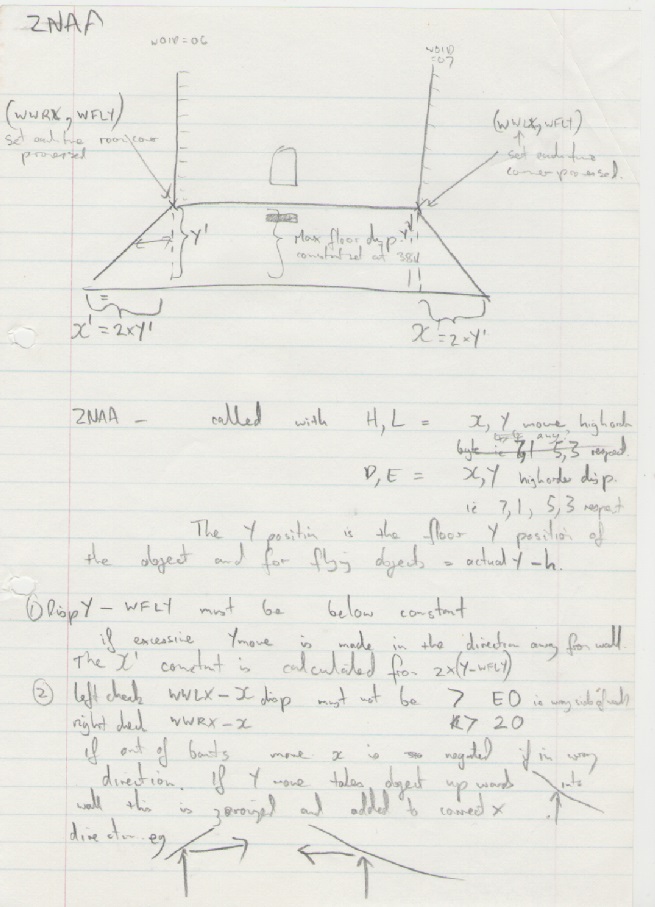 ZNAA
VOID=06
VOID
=07
(WWRX, WFLY)
set each time room/cor
processed
(WWLX, WFLY)
set each time
corner processed.
Y'
Max floor disp. Y'
constant at 38H
X' = 2xY'
X = 2xY'
ZNAA – called with H, L = X, Y move, high order
byte ie 7,1 5,3 respect.
D, E = X, Y high order disp.
ie 7,1, 5,3 respect
The Y position is the floor Y position of
the object and for flying objects = actual Y – h.
① Disp Y – WFLY must be below constant
if excessive Ymove is made in the direction away from wall.
The X' constant is calculated from 2x(Y-WFLY)
② left check WWLX – X disp must not be > E0 ie way
right check WWRX – X > 20
if out of bounds move X is negated if in wrong
direction. If Y move takes object up wards into
wall this is zeroized and added to correct X
direction. eg